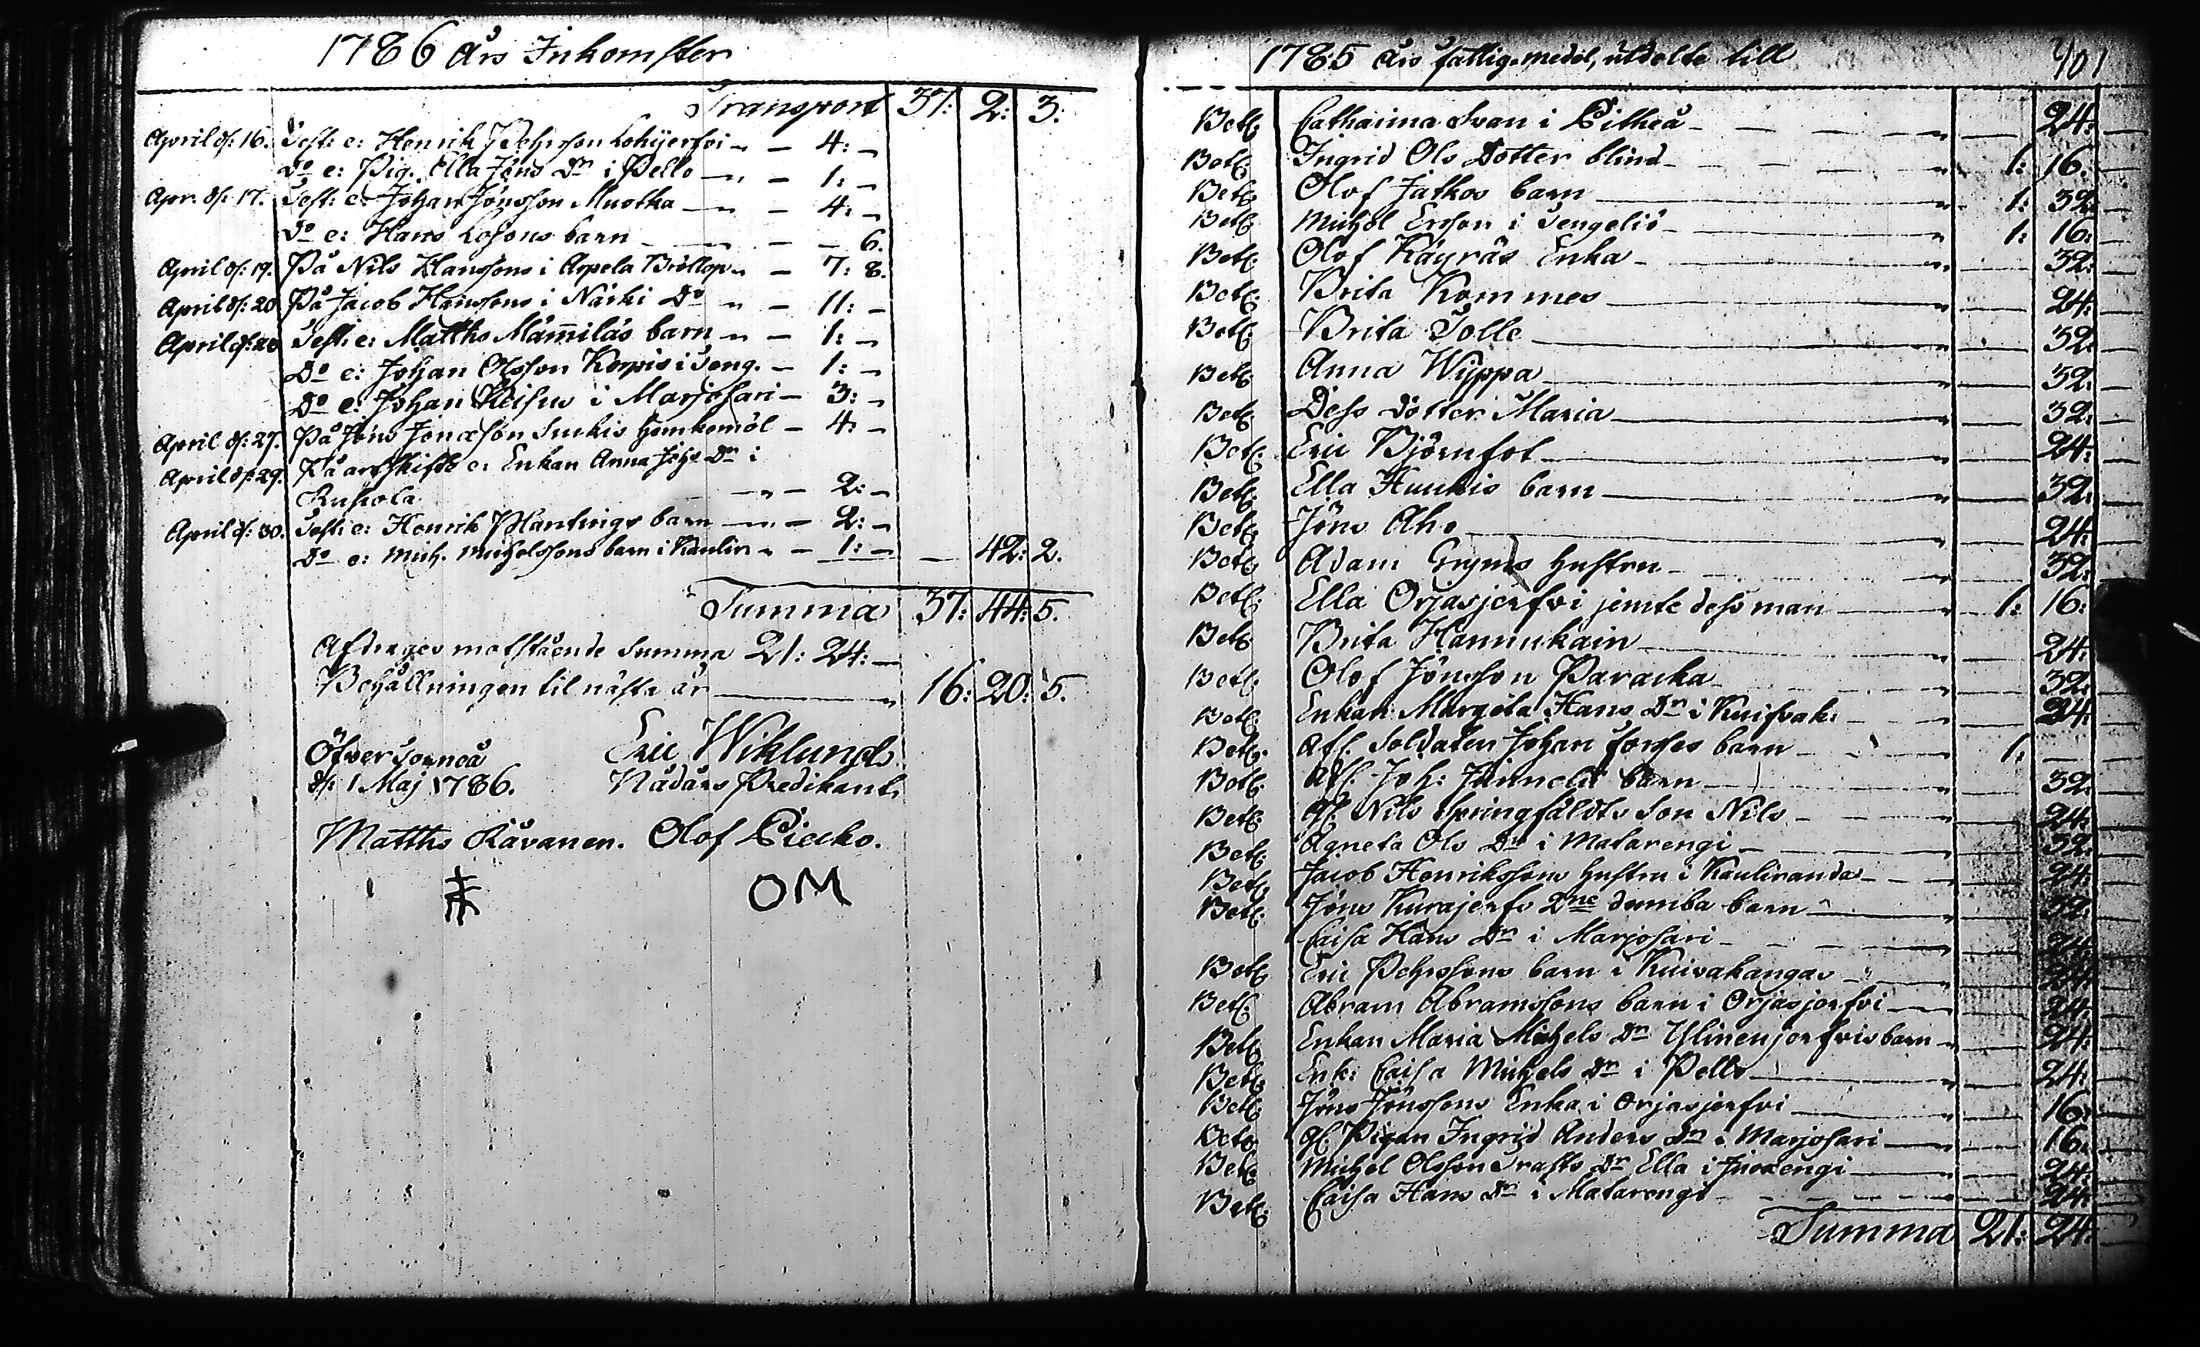 1786 års Inkomster
Transport 37: 2: 3.
April d: 16. Test: e: Henrik Pehrsson Lohijerfvi 4:
Do e: Pig. Ella Jöns Dr i Pello 1:
Apr. d: 17. Test: e: Johan Jönsson Muotka 4:
Do e: Hans barn 6.
April d: 19. På Nils Hanssons i Arpela Bröllop 7: 8.
April d: 20 På Jacob Hanssons i Närki Do 11:
April d: Test: e: Matths Mämmiläs barn 1:
Do e: Johan Olsson Korpis i Teng. 1:
Do e: Johan i Marjosari 3:
April d: 27. På Jöns Jonæson hemkomöl 4:
April d: 29. På arfskifte e: Enkan Anna Joh: Dr i
Ruskola 2:
April d: 30. Test: e: Henrik Plantings barn 2:
Do e: Mich. Michelssons barn i Kaulir 1: 42: 2.
Summa 37: 44: 5.
Afdrages motstående Summa 21: 24:
Behållningen til nästa år 16: 20: 5.
Öfver Torneå Eric Wiklund
d: 1 Maj 1786. Nådårs Predikant.
Matths Råvanen. Olof Piecko.
OM
1785 års fattig-medel, utdelte till 401
Bet. Catharina Svan i Pitheå 24:
Bet. Ingrid Ols Dotter blind 1: 16.
Bet. Olof Jatkos barn 1: 32:
Bet. Michel Ersson i Tengeliö 1: 16:
Bet. Olof Käyräs Enka 32:
Bet. Brita Kommes 24:
Bet. Brita Tolle 32:
Bet. Anna Wyppa 32:
Bet. Dess dotter Maria 32:
Bet. Eric Björnfot 24:
Bet. Ella Huukis barn 32:
Bet. Jöns Aho 24:
Bet. Adam Gryms hustru 32:
Bet. Ella Orjasjerfvi jemte dess man 1: 16:
Bet. Brita Hannukain 24:
Bet. Olof Jönsson Paracka 32:
Bet. Enkan Margeta Hans Dr i Kuifvak: 24:
Bet. Afl. Soldaten Johan barn 1:
Bet. Afl. Joh: barn 32:
Bet. Afl. Nils Springfäldts Son Nils 24:
Bet. Agneta Ols Dr i Matarengi 32:
Bet. Jacob Henrikssons hustru i Kauliranda 24:
Bet. Jöns Kurajerfv 2ne dumba barn 32:
Caisa Hans Dr i Marjosari 24:
Bet. Eric Pehrssons barn i Kuivakangas 24:
Bet. Abram Abramssons barn i Orjasjerfvi 24:
Bet. Enkan Maria Michels Dr Ylinenjerfvis barn 24:
Bet. Enk: Caisa Michels Dr i Pello 24:
Bet. Jöns Jönssons Enka i Orjasjerfvi 16:
Bet. Afl. Pigan Ingrid Anders Dr i Marjosari 16:
Bet. Michel Olsson Trasts Dr Ella i Juoxengi 24:
Bet. Caisa Hans Dr i Matarengi 24:
Summa 21: 24: